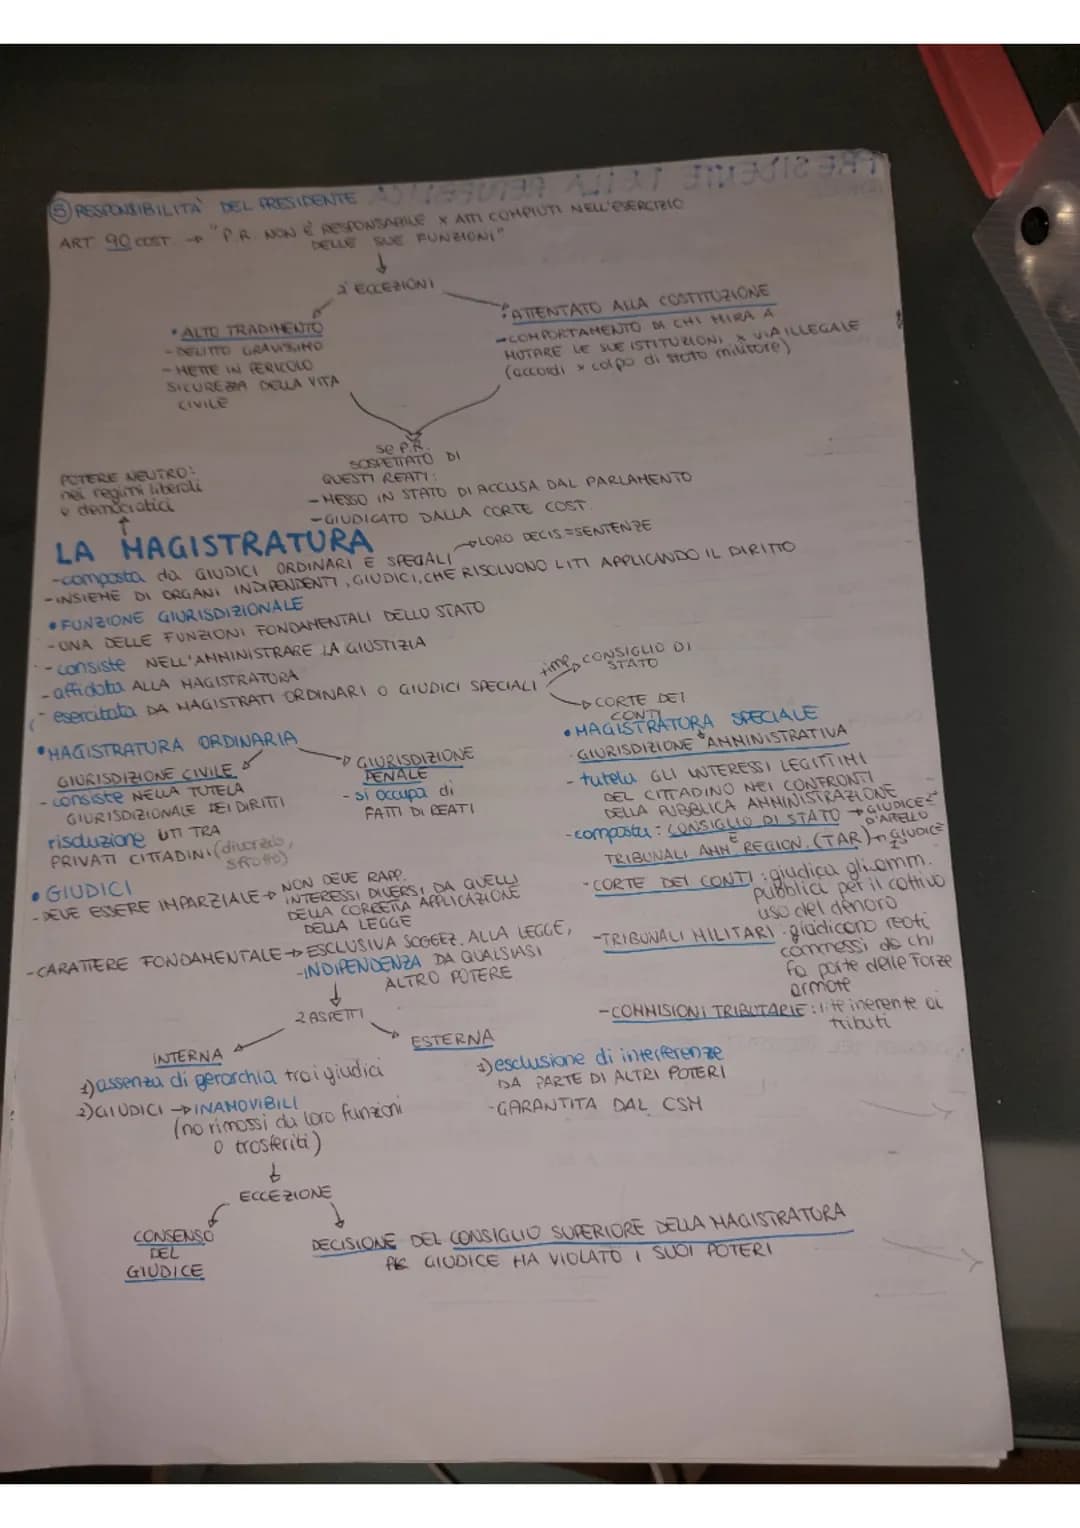 5) RESPONSABILITÀ DEL PRESIDENTE
ART 90 COST. → "P.R. NON È RESPONSABILE x ATTI COMPIUTI NELL'ESERCIZIO
DELLE SUE FUNZIONI"
2 ECCEZIONI
• ALTO TRADIMENTO
- DELITTO GRAVISSIMO
- METTE IN PERICOLO
SICUREZZA DELLA VITA
CIVILE
• ATTENTATO ALLA COSTITUZIONE
- COMPORTAMENTO DI CHI MIRA A
MUTARE LE SUE ISTITUZIONI x VIA ILLEGALE
(accordi x colpo di stato militare)
se P.R.
SOSPETTATO DI
QUESTI REATI:
- MESSO IN STATO DI ACCUSA DAL PARLAMENTO
- GIUDICATO DALLA CORTE COST.
POTERE NEUTRO:
nei regimi liberali
e democratici
LA MAGISTRATURA
- composta da GIUDICI ORDINARI E SPECIALI → LORO DECIS = SENTENZE
- INSIEME DI ORGANI INDIPENDENTI, GIUDICI, CHE RISOLVONO LITI APPLICANDO IL DIRITTO
• FUNZIONE GIURISDIZIONALE
- UNA DELLE FUNZIONI FONDAMENTALI DELLO STATO
- consiste NELL'AMMINISTRARE LA GIUSTIZIA
- affidata ALLA MAGISTRATURA
- esercitata DA MAGISTRATI ORDINARI O GIUDICI SPECIALI
+imp → CONSIGLIO DI
STATO
→ CORTE DEI
CONTI
• MAGISTRATURA ORDINARIA
GIURISDIZIONE CIVILE
- consiste NELLA TUTELA
GIURISDIZIONALE DEI DIRITTI
risoluzione LITI TRA
PRIVATI CITTADINI (divorzio,
sfratto)
→ GIURISDIZIONE
PENALE
- si occupa di
FATTI DI REATI
• MAGISTRATURA SPECIALE
GIURISDIZIONE AMMINISTRATIVA
- tutela GLI INTERESSI LEGITTIMI
DEL CITTADINO NEI CONFRONTI
DELLA PUBBLICA AMMINISTRAZIONE
- composta: CONSIGLIO DI STATO → GIUDICE
D'APPELLO
E
TRIBUNALI AMM REGION. (TAR) → GIUDICE
- CORTE DEI CONTI: giudica gli amm.
pubblici per il cattivo
uso del denaro
- TRIBUNALI MILITARI: giudicano reati
commessi da chi
fa parte delle Forze
armate
- COMMISIONI TRIBUTARIE: lite inerente ai
tributi
• GIUDICI
- DEVE ESSERE IMPARZIALE → NON DEVE RAPP.
INTERESSI DIVERSI DA QUELLI
DELLA CORRETTA APPLICAZIONE
DELLA LEGGE
- CARATTERE FONDAMENTALE → ESCLUSIVA SOGGEZ. ALLA LEGGE,
- INDIPENDENZA DA QUALSIASI
ALTRO POTERE
2 ASPETTI
INTERNA
1) assenza di gerarchia tra i giudici
2) GIUDICI → INAMOVIBILI
(no rimossi da loro funzioni
o trasferiti)
ESTERNA
1) esclusione di interferenze
DA PARTE DI ALTRI POTERI
- GARANTITA DAL CSM
ECCEZIONE
CONSENSO
DEL
GIUDICE
DECISIONE DEL CONSIGLIO SUPERIORE DELLA MAGISTRATURA
GIUDICE HA VIOLATO I SUOI POTERI